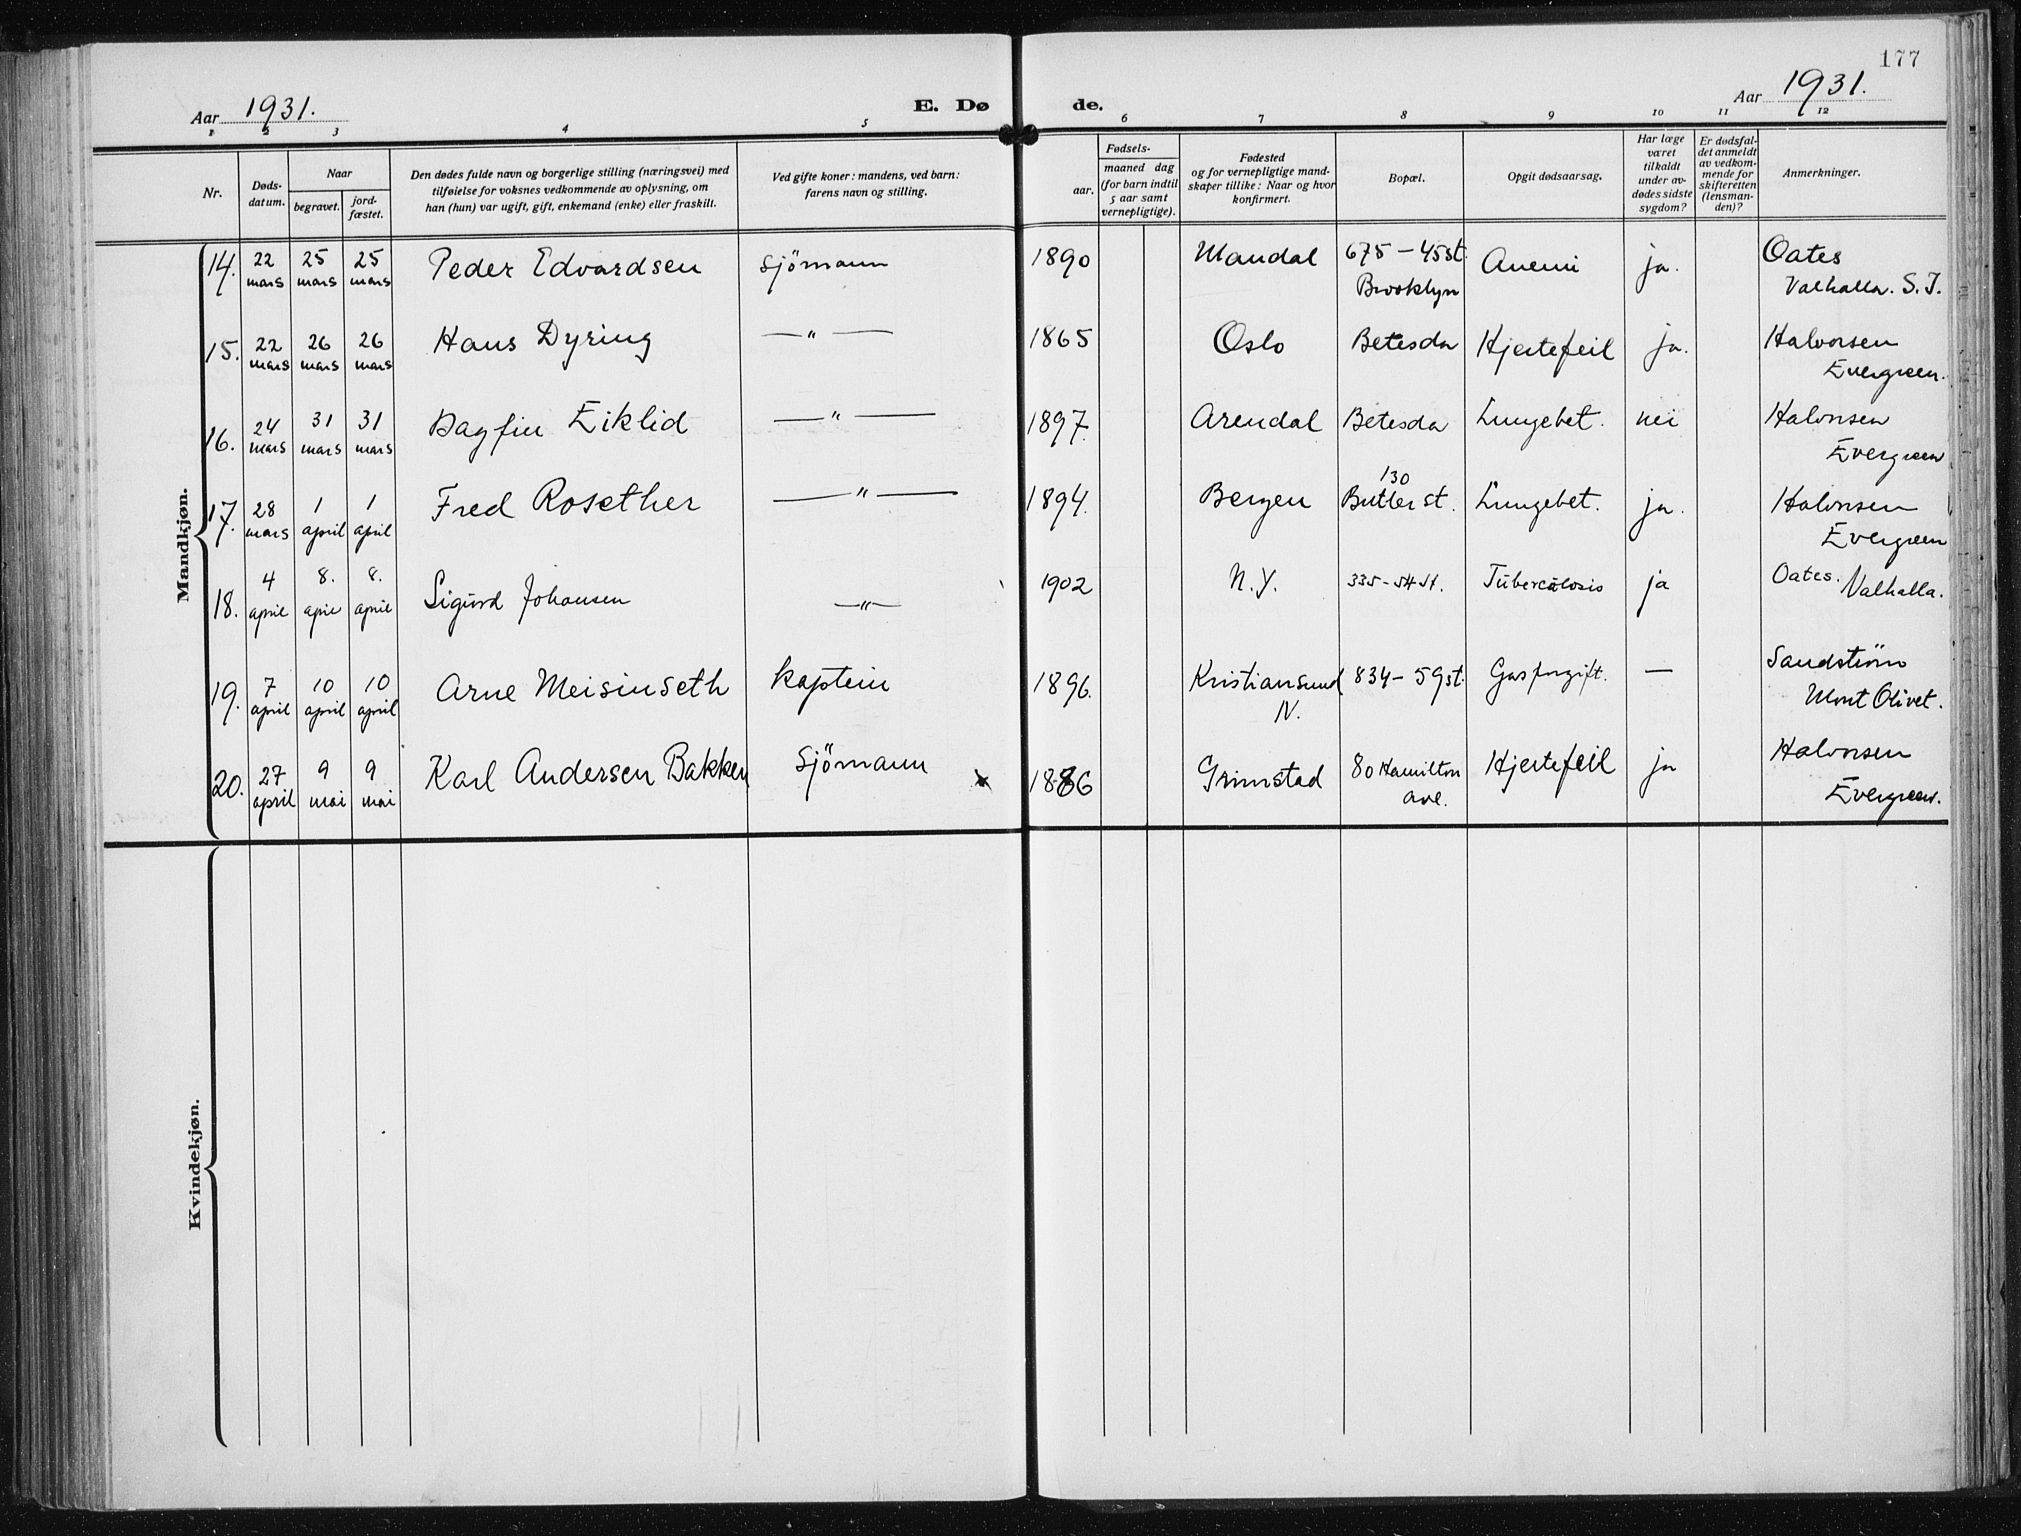 177
Aar 1931.
E. Dø de.
Aar 1931.
1 2 3 4 5 6 7 8 9 10 11 12
Nr.
Døds-
datum.
Naar
begravet.
jord-
fæstet.
Den dødes fulde navn og borgerlige stilling (næringsvei) med
tilføielse for voksnes vedkommende av oplysning, om
han (hun) var ugift, gift, enkemand (enke) eller fraskilt.
Ved gifte koner: mandens, ved barn:
farens navn og stilling.
Fødsels-
aar.
maaned dag
(for barn indtil
5 aar samt
vernepligtige).
Fødested
og for vernepligtige mand-
skaper tillike: Naar og hvor
konfirmert.
Bopæl.
Opgit dødsaarsag.
Har læge
været
tilkaldt
under av-
dødes sidste
sygdom?
Er dødsfal-
det anmeldt
av vedkom-
mende for
skifteretten
(lensman-
den)?
Anmerkninger.
Mandkjøn.
14. 22 mars 25 mars 25 mars Peder Edvardsen Sjömann 1890 Mandal 675-45st. Brooklyn Anemi ja. Oates Valhalla. S.I.
15. 22 mars 26 mars 26 mars Hans Dyring — " — 1865 Oslo Betesda Hjertefeil ja. Halvorsen Evergreen.
16. 24 mars 31 mars 31 mars Dagfin Eiklid — " — 1897. Arendal Betesda Lungebet. nei Halvorsen Evergreen
17. 28 mars 1 april 1 april Fred Rosether — " — 1894. Bergen 130 Butler st. Lungebet. ja. Halvorsen Evergreen
18. 4 april 8. april 8. april Sigurd Johansen — " — 1902 N.Y. 335-54 St. Tuberculosis ja Oates. Valhalla.
19. 7 april 10 april 10 april Arne Meisinseth kaptein 1896. Kristiansund N. 834-59st. Gasforgift. — Sandstrøm Mont Olivet.
20. 27 april 9 mai 9 mai Karl Andersen Bakken Sjömann x 1886 Grimstad 80 Hamilton ave. Hjertefeil ja Halvorsen Evergreen.
Kvindekjøn.